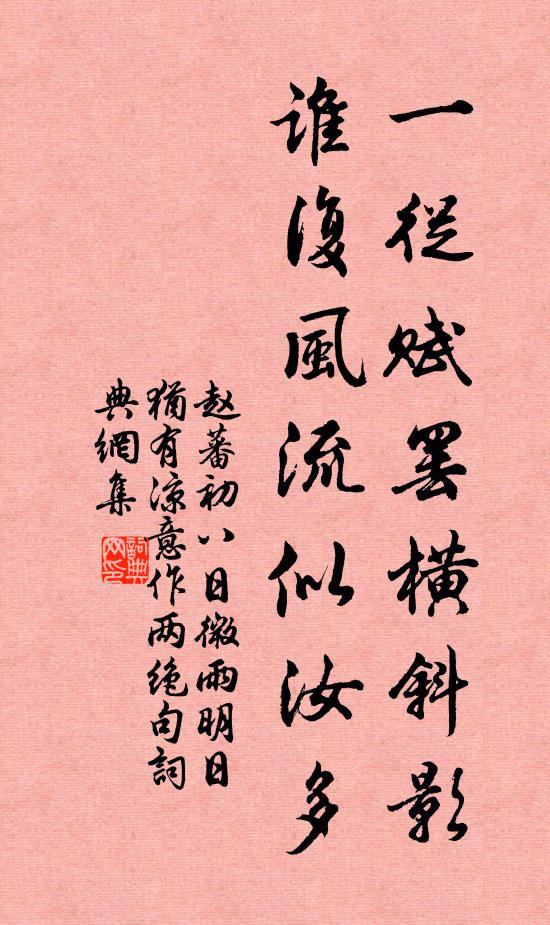 一從賦罢橫斜影
誰復風流似汝多
赵蕃初八日微雨明日
猶有凉意作两绝句詞
典網集
詞典
网印